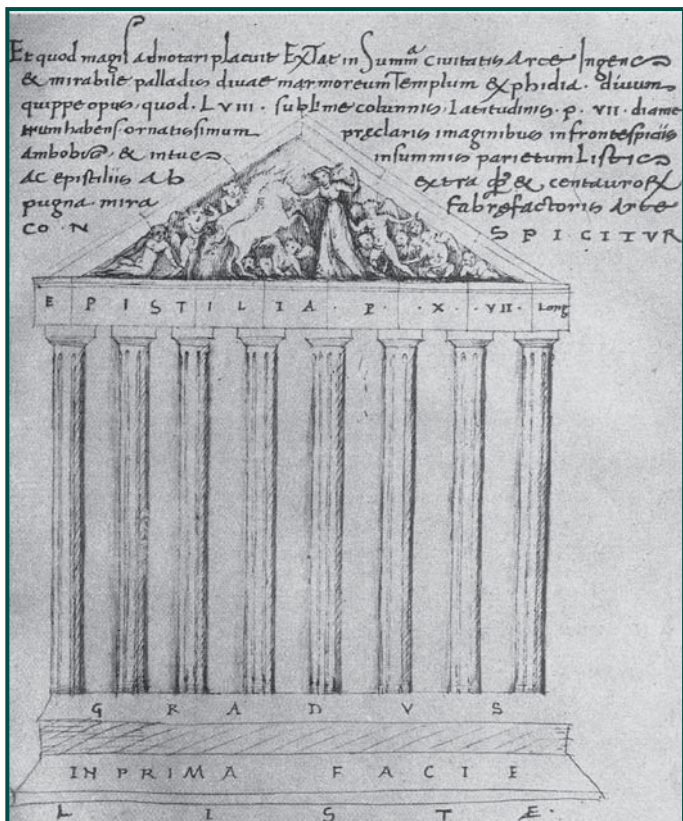 Et quod magis adnotari placuit ExTat in Summa civitatis Arce Ingens
& mirabile palladis divae marmoreum Templum & phidia. divum
quippe opus, quod. LVIII. sublime columnis, Latitudinis. p. VII. diame
trum habens. ornatissimum preclaris imaginibus in frontespiciis
Ambobus, & intus in summis parietum Listis
Ac epistiliis Ab extra & centaurorꝝ
pugna. mira Fabrefactoris Arte
CO . N SPICITVR
EPISTILIA . P . X . VII . Long
GRADVS
IN PRIMA FACIE
LISTÆ.